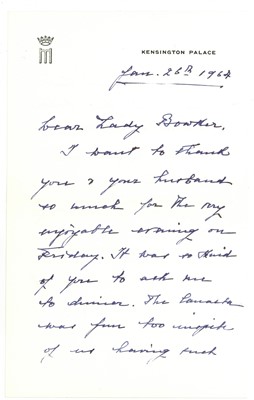 M
KENSINGTON PALACE
Jan. 26th 1964
Dear Lady Bowker.
I want to thank
you & your husband
so much for the very
enjoyable evening on
Friday. It was so kind
of you to ask me
to dinner. The Canasta
was fun too inspite
of us having such